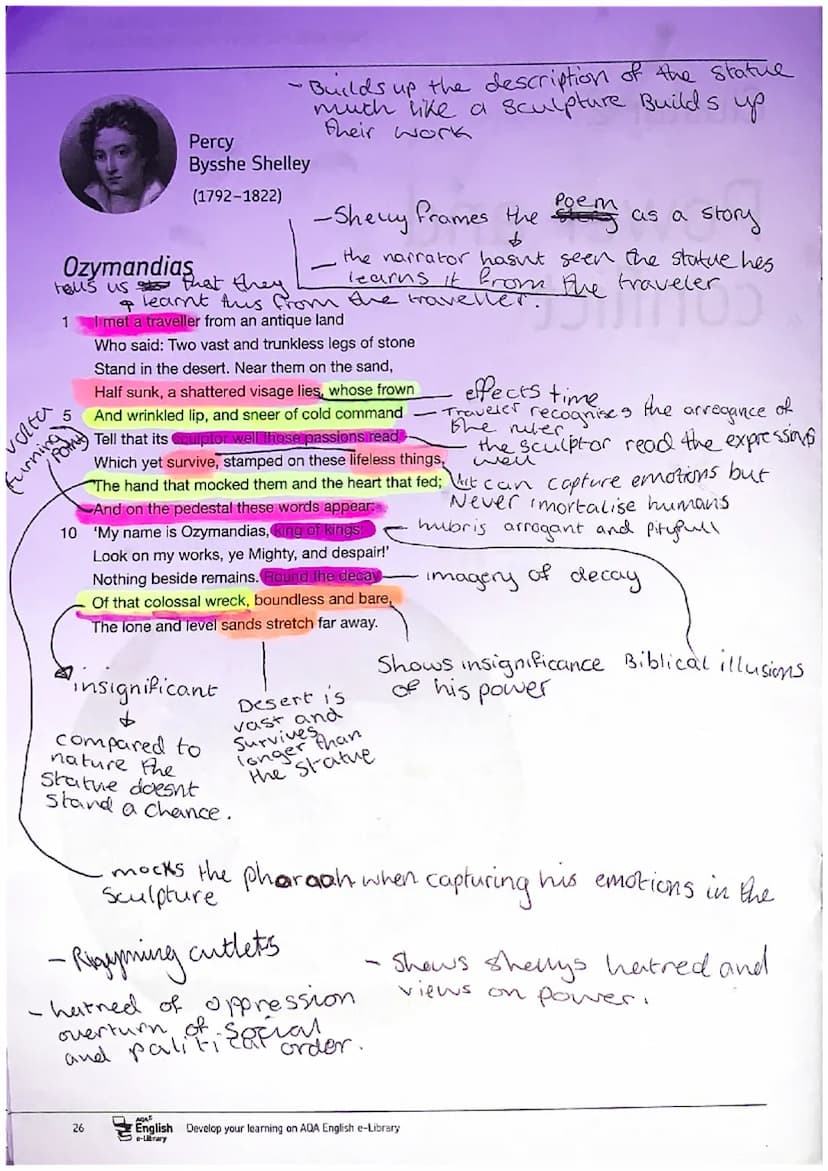 - Builds up the description of the statue
much like a sculpture Builds up
their work
Percy
Bysshe Shelley
(1792–1822)
- Shelly frames the poem as a story
- the narrator hasnt seen the statue hes
learns it from the traveler
Ozymandias
tells us that they
learnt this from the traveller.
1 I met a traveller from an antique land
Who said: Two vast and trunkless legs of stone
Stand in the desert. Near them on the sand,
Half sunk, a shattered visage lies, whose frown
effects time
5 And wrinkled lip, and sneer of cold command
- Traveler recognises the arrogance of
the ruler
volta
(turning
point)
Tell that its sculptor well those passions read
the sculptor read the expressions
well
Which yet survive, stamped on these lifeless things,
The hand that mocked them and the heart that fed;
Art can capture emotions but
Never imortalise humans
And on the pedestal these words appear:
10 'My name is Ozymandias, king of kings:
hubris arrogant and pityfull
Look on my works, ye Mighty, and despair!'
Nothing beside remains. Round the decay
imagery of decay
Of that colossal wreck, boundless and bare,
The lone and level sands stretch far away.
Shows insignificance
of his power
Biblical illusions
insignificant
compared to
nature the
statue doesnt
stand a chance.
Desert is
vast and
survives
longer than
the statue
- mocks the pharaoh when capturing his emotions in the
sculpture
- Rhyming cutlets
- Shows Shellys hatred and
views on power.
- hatred of oppression
overturn of social
and political order.
26 AQA English e-Library Develop your learning on AQA English e-Library